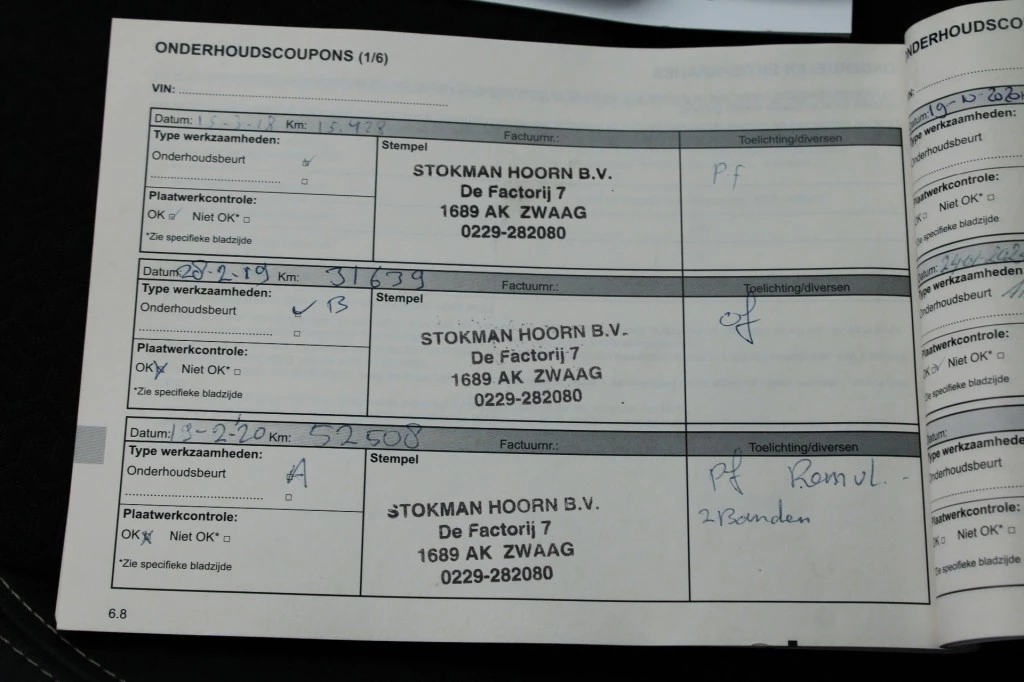 ONDERHOUDSCOUPONS (1/6)
VIN:
Datum: 15-3-18 Km: 15.428 Factuurnr.: Toelichting/diversen
Type werkzaamheden:
Stempel
Onderhoudsbeurt
Pf
STOKMAN HOORN B.V.
De Factorij 7
1689 AK ZWAAG
0229-282080
Plaatwerkcontrole:
OK Niet OK*
*Zie specifieke bladzijde
Datum: 28-2-19 Km: 31639 Factuurnr.: Toelichting/diversen
Type werkzaamheden:
Stempel
Onderhoudsbeurt B
of
STOKMAN HOORN B.V.
De Factorij 7
1689 AK ZWAAG
0229-282080
Plaatwerkcontrole:
OK Niet OK*
*Zie specifieke bladzijde
Datum: 19-2-20 Km: 52508 Factuurnr.: Toelichting/diversen
Type werkzaamheden:
Stempel
Onderhoudsbeurt A
Pf Remvl.
2 Banden
STOKMAN HOORN B.V.
De Factorij 7
1689 AK ZWAAG
0229-282080
Plaatwerkcontrole:
OK Niet OK*
*Zie specifieke bladzijde
6.8
ONDERHOUDSCO
Datum:
Type werkzaamheden:
Onderhoudsbeurt
Plaatwerkcontrole:
OK Niet OK*
*Zie specifieke bladzijde
Datum:
Type werkzaamheden
Onderhoudsbeurt
Plaatwerkcontrole:
OK Niet OK*
*Zie specifieke bladzijde
Datum:
Type werkzaamhede
Onderhoudsbeurt
Plaatwerkcontrole:
OK Niet OK*
*Zie specifieke bladzijde